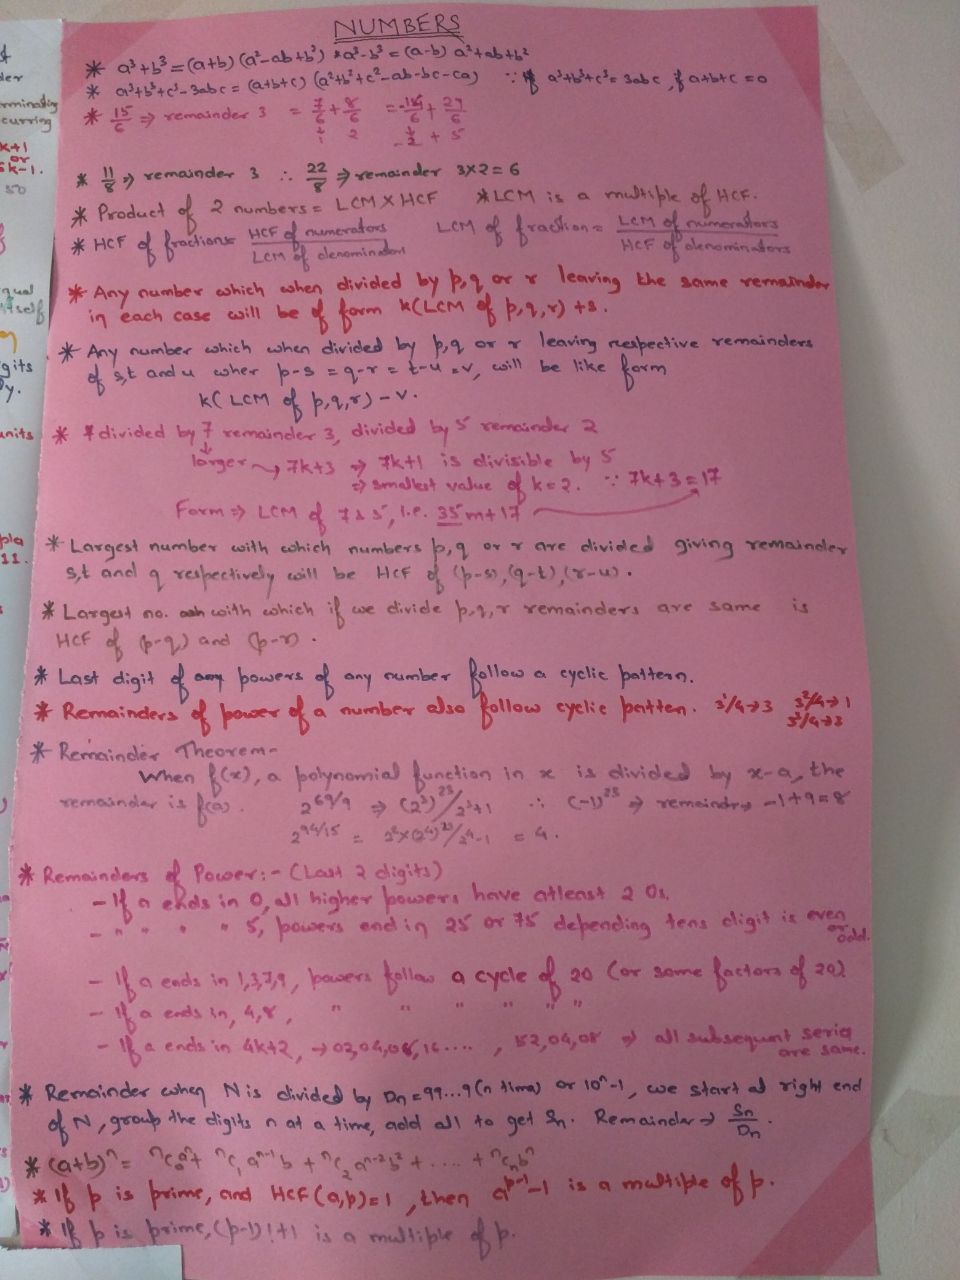 NUMBERS
* a³+b³ = (a+b) (a²-ab+b²) * a³-b³ = (a-b) a²+ab+b²
* a³+b³+c³-3abc = (a+b+c) (a²+b²+c²-ab-bc-ca) ∵ if a³+b³+c³ = 3abc, if a+b+c = 0
* 15/6 ⇒ remainder 3 = 7/6 + 8/6 = -14/6 + 29/6
1 2 -2 + 5
* 11/8 ⇒ remainder 3 ∴ 22/8 ⇒ remainder 3×2 = 6
* Product of 2 numbers = LCM X HCF * LCM is a multiple of HCF.
* HCF of fractions = HCF of numerators / LCM of denominators LCM of fractions = LCM of numerators / HCF of denominators
* Any number which when divided by p,q or r leaving the same remainder
in each case will be of form k(LCM of p,q,r) + s.
* Any number which when divided by p,q or r leaving respective remainders
of s,t and u wher p-s = q-r = t-u = v, will be like form
k( LCM of p,q,r) - v.
* # divided by 7 remainder 3, divided by 5 remainder 2
larger → 7k+3 ⇒ 7k+1 is divisible by 5
⇒ smallest value of k=2. ∵ 7k+3 = 17
Form ⇒ LCM of 7 & 5, i.e. 35m+17
* Largest number with which numbers p,q or r are divided giving remainder
s,t and q respectively will be HCF of (p-s), (q-t), (r-u).
* Largest no. with which if we divide p,q,r remainders are same is
HCF of (p-q) and (p-r).
* Last digit of any powers of any number follow a cyclic pattern.
* Remainders of power of a number also follow cyclic patten. 3¹/4→3 3²/4→1
3³/4→3
* Remainder Theorem-
When f(x), a polynomial function in x is divided by x-a, the
remainder is f(a). 2^69/9 ⇒ (2³)^23/2³+1 ∴ (-1)^23 ⇒ remainder -1+9=8
2^94/15 = 2²×(2⁴)^23/2⁴-1 = 4.
* Remainders of Power:- (Last 2 digits)
- If a ends in 0, all higher powers have atleast 2 0s.
- " " " " 5, powers end in 25 or 75 depending tens digit is even
or odd.
- If a ends in 1,3,7,9, powers follow a cycle of 20 (or some factors of 20)
- If a ends in, 4,8, " " " " " "
- If a ends in 4k+2, → 02,04,08,16...., 52,04,08 ⇒ all subsequent series
are same.
* Remainder when N is divided by Dn = 99...9 (n times) or 10ⁿ-1, we start at right end
of N, group the digits n at a time, add all to get Sn. Remainder ⇒ Sn/Dn
* (a+b)ⁿ = ⁿC₀aⁿ + ⁿC₁ aⁿ⁻¹b + ⁿC₂ aⁿ⁻²b² + .... + ⁿCₙbⁿ
* If p is prime, and HCF (a,p)=1, then a^p-1 -1 is a multiple of p.
* If p is prime, (p-1)!+1 is a multiple of p.